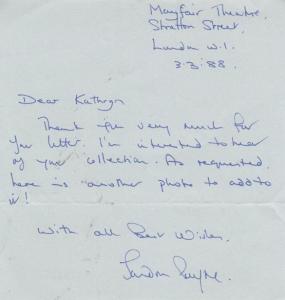 Mayfair Theatre,
Stratton Street,
London W.1.
3.3.88.
Dear Kathryn
Thank you very much for
your letter. I'm interested to hear
of your collection. As requested,
here is another photo to add to
it!
With all Best Wishes,